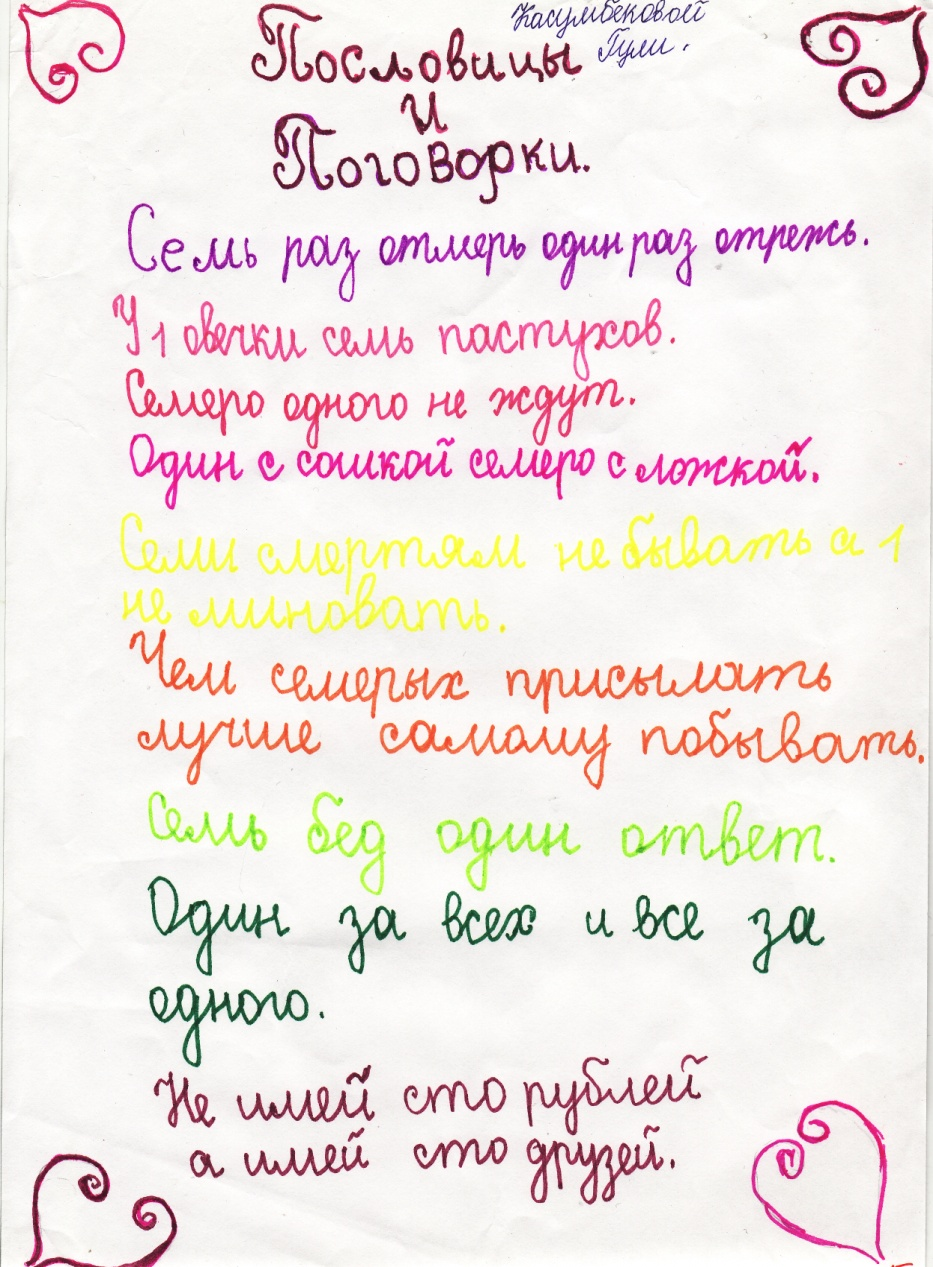 Касумбековой
Гули.
Пословицы
и
Поговорки.
Семь раз отмерь один раз отрежь.
У 1 овечки семь пастухов.
Семеро одного не ждут.
Один с сошкой семеро с ложкой.
Семи смертям не бывать а 1
не миновать.
Чем семерых присылать
лучше самому побывать.
Семь бед один ответ.
Один за всех и все за
одного.
Не имей сто рублей
а имей сто друзей.